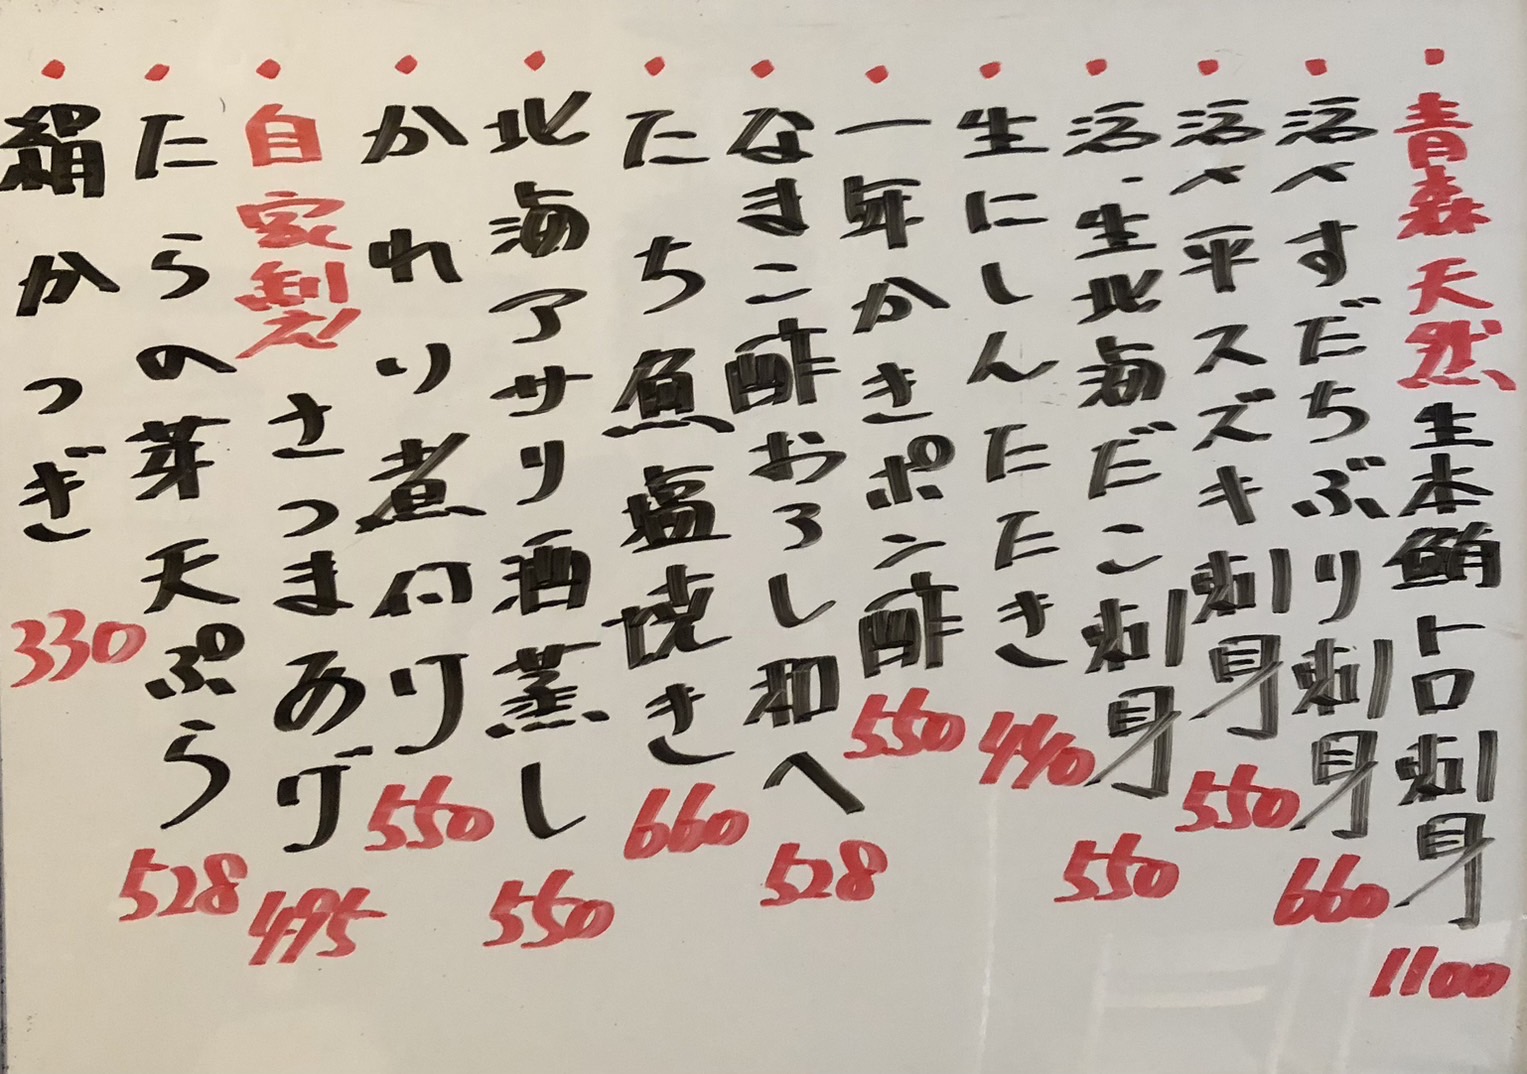 ・青森天然生本鮪トロ刺身 1100
・活〆すだちぶり刺身 660
・活〆平スズキ刺身 550
・活・生北海だこ刺身 550
・生にしんたたき 440
・一年かきポン酢 550
・なまこ酢おろし和へ 528
・たち魚塩焼き 660
・北海アサリ酒蒸し 550
・かれい煮付け 550
・自家製さつまあげ 495
・たらの芽天ぷら 528
・絹かつぎ 330